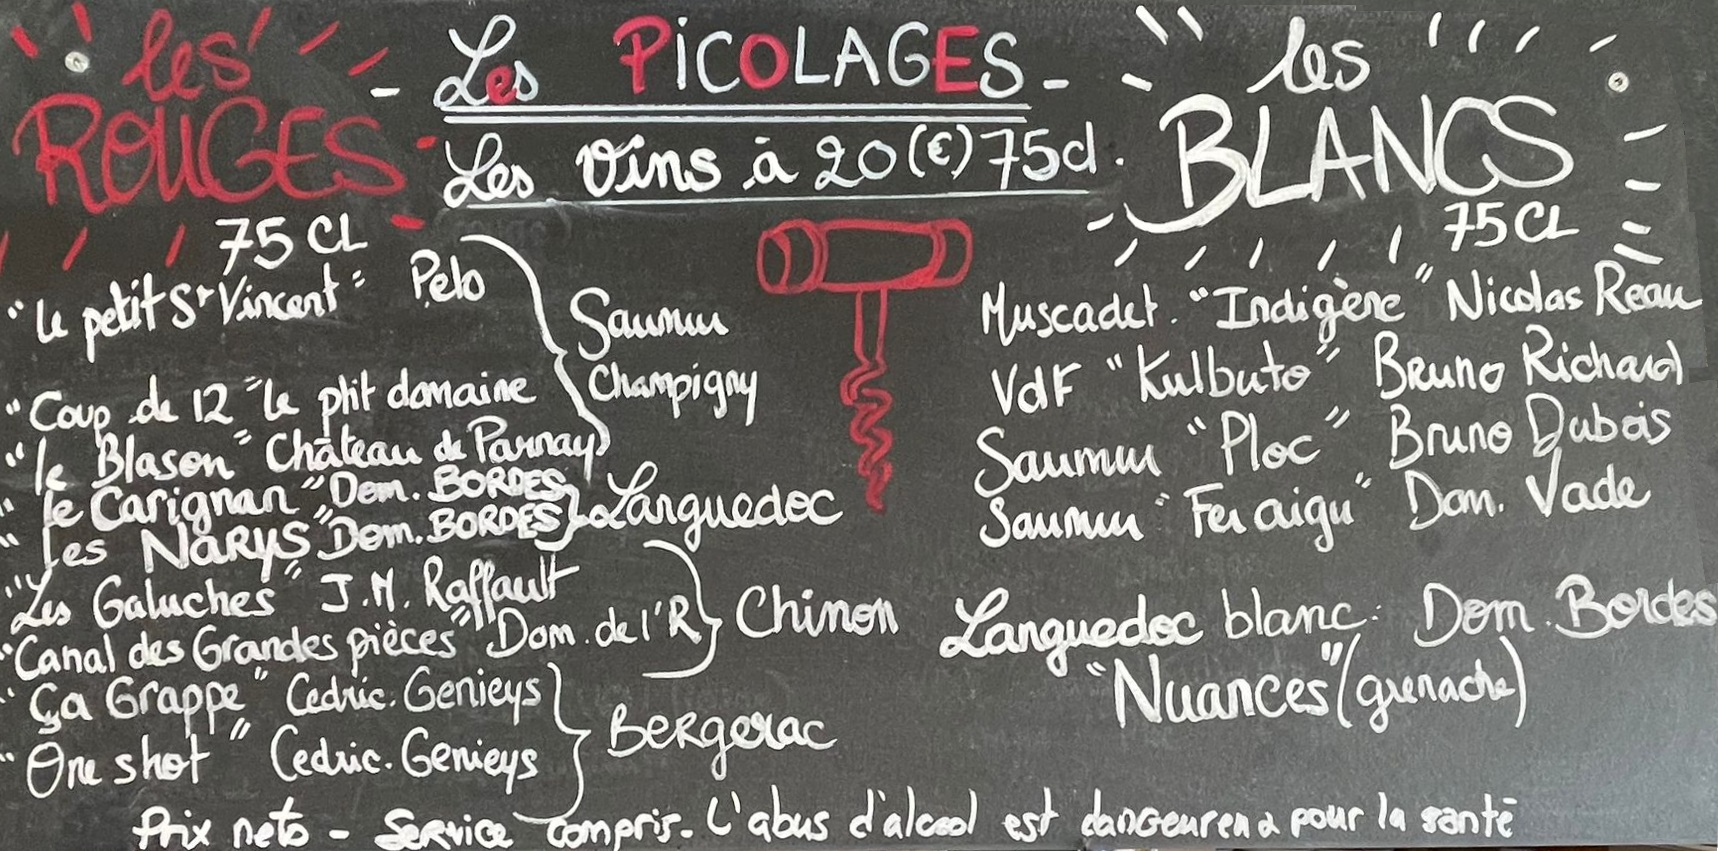 - Les PiCOLAGES -
Les Vins à 20 (€) 75cl.
les
ROUGES
75 CL
"Le petit St Vincent" Pelo
"Coup de 12" le ptit domaine
"le Blason" Château de Parnay
Saumur
Champigny
"le Carignan" Dom. BORDES
"Les NARYS" Dom. BORDES
Languedoc
"Les Galuches" J.M. Raffault
"Canal des Grandes pièces" Dom. de l'R
Chinon
"Ça Grappe" Cedric. Genieys
"One shot" Cedric. Genieys
Bergerac
les
BLANCS
75CL
Muscadet. "Indigène" Nicolas Reau
VdF "Kulbuto" Bruno Richard
Saumur "Ploc" Bruno Dubois
Saumur "Fer aigu" Dom. Vade
Languedoc blanc: Dom. Bordes
"Nuances" (grenache)
Prix nets - Service compris. L'abus d'alcool est pour la santé